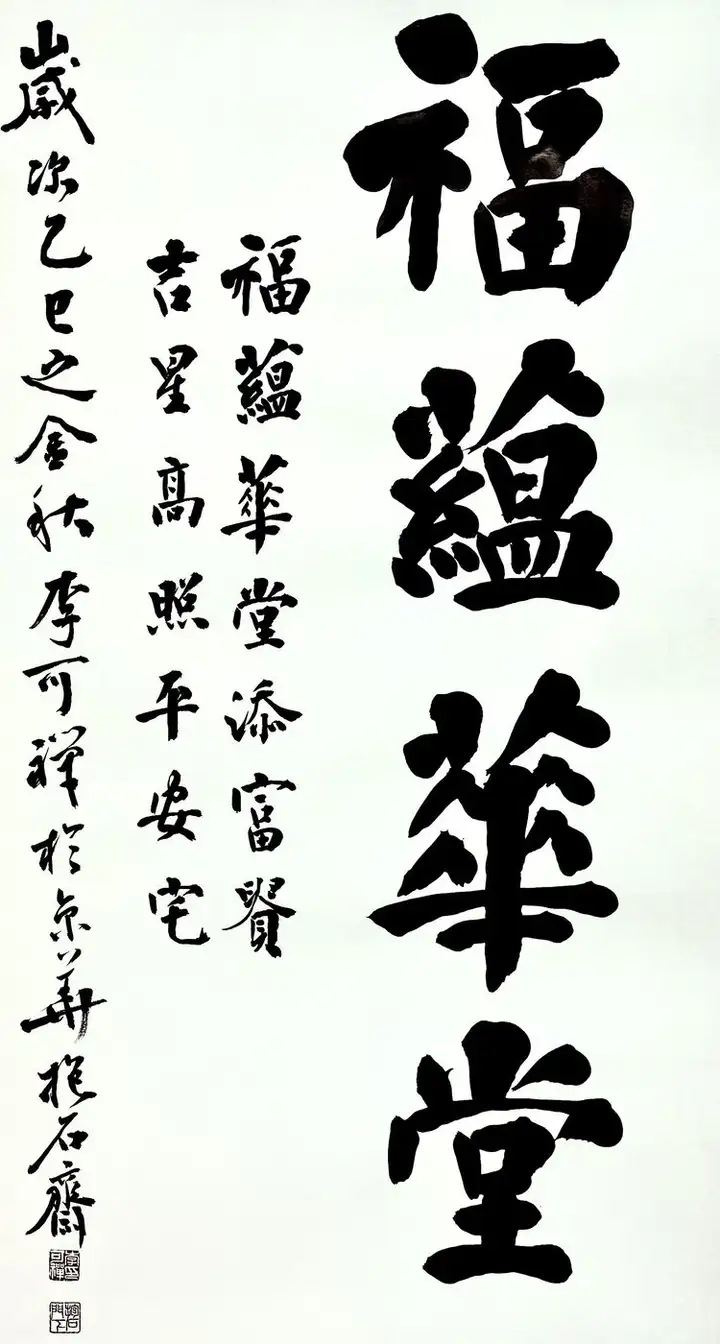 福蘊華堂
福蘊華堂添富贤
吉星高照平安宅
歲次乙巳之金秋李可禅於京華抱石齋